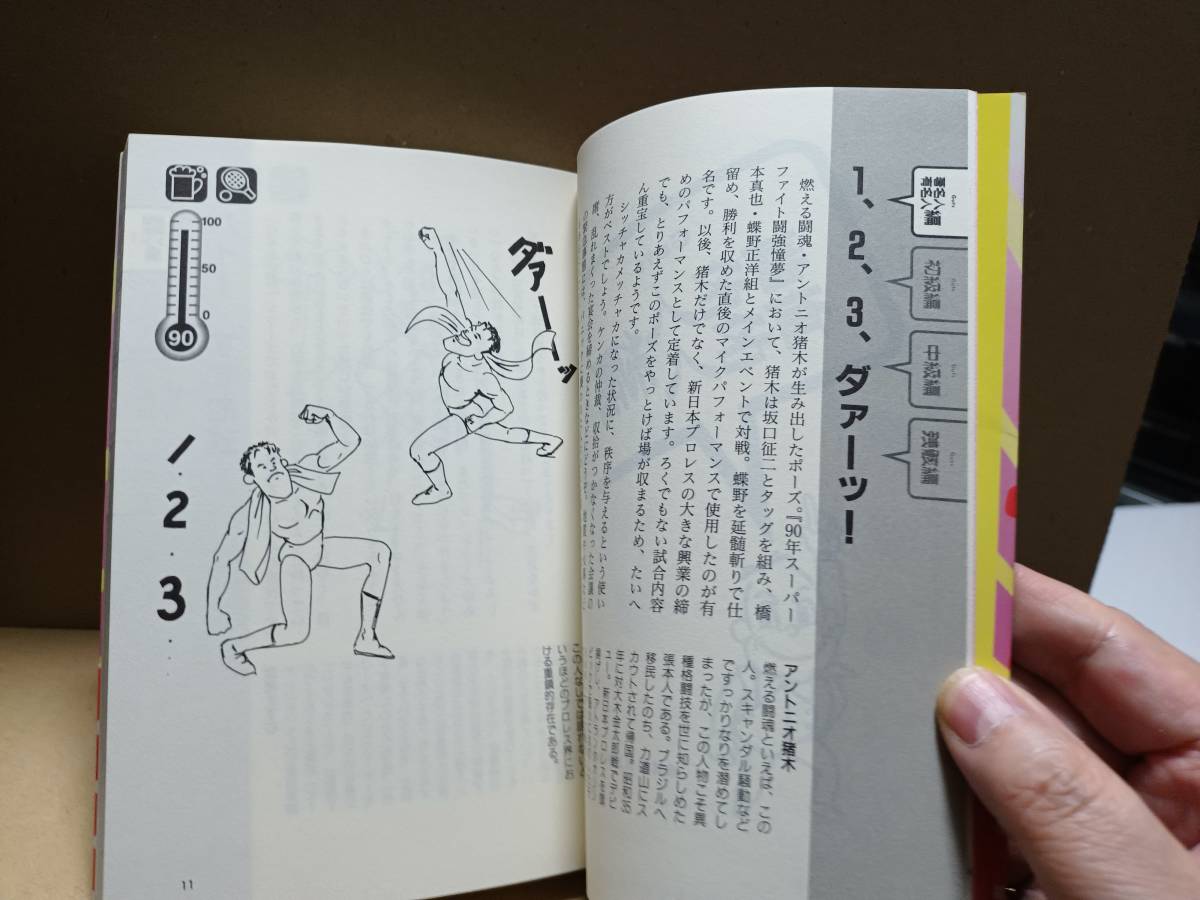 初級編
中級編
1、2、3、ダァーッ！
燃える闘魂・アントニオ猪木が生み出したポーズ。『90年スーパー
ファイト闘強憧夢』において、猪木は坂口征二とタッグを組み、橋
本真也・蝶野正洋組とメインエベントで対戦。蝶野を延髄斬りで仕
留め、勝利を収めた直後のマイクパフォーマンスで使用したのが有
名です。以後、猪木だけでなく、新日本プロレスの大きな興業の締
めのパフォーマンスとして定着しています。ろくでもない試合内容
でも、とりあえずこのポーズをやっとけば場が収まるため、たいへ
ん重宝しているようです。
シッチャカメッチャカになった状況に、秩序を与えるという使い
方がベストでしょう。ケンカの仲裁、収拾がつかなくなった会議の
際、乱れまくった宴会を締めるときなどにどうぞ。
アントニオ猪木
燃える闘魂といえば、この
人。スキャンダル騒動など
ですっかりなりを潜めてし
まったが、この人物こそ異
種格闘技を世に知らしめた
張本人である。ブラジルへ
移民したのち、力道山にス
カウトされて帰国。昭和35
年に対大木金太郎戦でデビ
ュー。新日本プロレスを
この人なしでは語れないと
いうほどのプロレス界にお
ける重鎮的存在である。
100
50
0
90
ダァーーッ
1・2・3・・
11